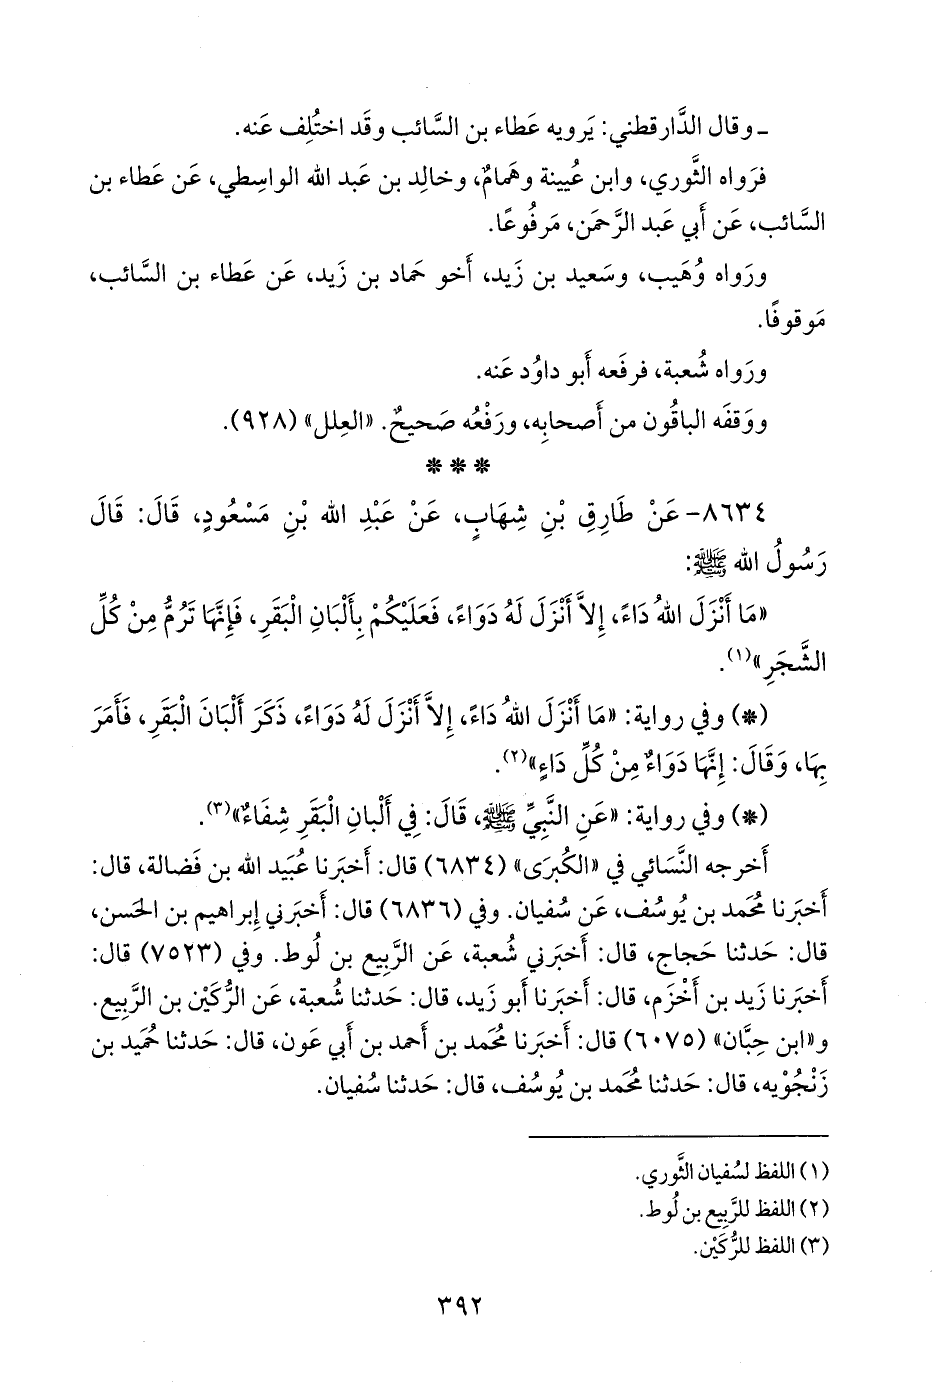 ـ وقال الدَّارقطني: يَرويه عَطاء بن السَّائب وقَد اختُلِف عَنه.
فرَواه الثَّوري، وابن عُيينة وهَمامٌ، وخالِد بن عَبد الله الواسِطي، عَن عَطاء بن
السَّائب، عَن أَبي عَبد الرَّحمَن، مَرفُوعًا.
ورَواه وُهَيب، وسَعيد بن زَيد، أَخو حَماد بن زَيد، عَن عَطاء بن السَّائب،
مَوقوفًا.
ورَواه شُعبة، فرفَعه أَبو داوُد عَنه.
ووَقفَه الباقُون من أَصحابِه، ورَفْعُه صَحيحٌ. «العِلل» (٩٢٨).
* * *
٨٦٣٤- عَنْ طَارِقِ بْنِ شِهَابٍ، عَنْ عَبْدِ الله بْنِ مَسْعُودٍ، قَالَ: قَالَ
رَسُولُ الله ﷺ:
«مَا أَنْزَلَ اللهُ دَاءً، إِلاَّ أَنْزَلَ لَهُ دَوَاءً، فَعَلَيْكُمْ بِأَلْبَانِ الْبَقَرِ، فَإِنَّهَا تَرُمُّ مِنْ كُلِّ
الشَّجَرِ»(١).
(*) وفي رواية: «مَا أَنْزَلَ اللهُ دَاءً، إِلاَّ أَنْزَلَ لَهُ دَوَاءً، ذَكَرَ أَلْبَانَ الْبَقَرِ، فَأَمَرَ
بِهَا، وَقَالَ: إِنَّهَا دَوَاءٌ مِنْ كُلِّ دَاءٍ»(٢).
(*) وفي رواية: «عَنِ النَّبِيِّ ﷺ، قَالَ: فِي أَلْبانِ الْبَقَرِ شِفَاءٌ»(٣).
أَخرجه النَّسَائي في «الكُبرَى» (٦٨٣٤) قال: أَخبَرنا عُبَيد الله بن فَضالة، قال:
أَخبَرنا مُحمد بن يُوسُف، عَن سُفيان. وفي (٦٨٣٦) قال: أَخبَرني إِبراهيم بن الحَسن،
قال: حَدثنا حَجاج، قال: أَخبَرني شُعبة، عَن الرَّبيع بن لُوط. وفي (٧٥٢٣) قال:
أَخبَرنا زَيد بن أَخْزَم، قال: أَخبَرنا أَبو زَيد، قال: حَدثنا شُعبة، عَن الرُّكَيْن بن الرَّبيع.
و«ابن حِبَّان» (٦٠٧٥) قال: أَخبَرنا مُحمد بن أَحمد بن أَبي عَون، قال: حَدثنا حُميد بن
زَنْجُوْيه، قال: حَدثنا مُحمد بن يُوسُف، قال: حَدثنا سُفيان.
(١) اللفظ لسُفيان الثَّوري.
(٢) اللفظ للرَّبِيع بن لُوط.
(٣) اللفظ للرُّكَيْن.
٣٩٢